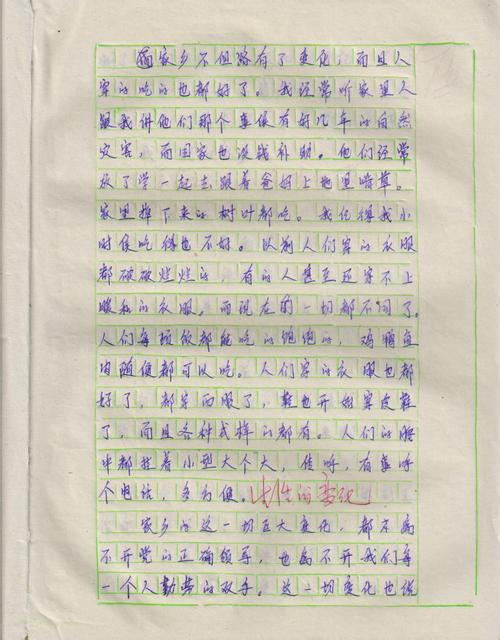 家乡不但路有了变化，而且人
穿的吃的也都好了。我经常听家里人
跟我讲他们那个事侯有好几年的自然
灾害，而国家也没钱补助。他们经常
放了学一起去跟着爸妈上地里 草。
家里掉下来的树叶都吃。我记得我小
时侯吃得也不好。以前人们穿的衣服
都破破烂烂的，有的人甚至还穿不上
暖和的衣服。而现在的一切都不同了。
人们每顿饭都能吃的饱饱的，鸡鸭鱼
肉随便都可以吃。人们穿的衣服也都
好了，都穿西服了，鞋也开始穿皮鞋
了，而且各种式样的都有。人们的腰
中都挂着小型大个大，传呼，有事呼
个电话，多方便。 的变化
家乡的这一切巨大变化，都离
不开党的正确领导，也离不开我们每
一个人勤劳的双手。这一切变化也使